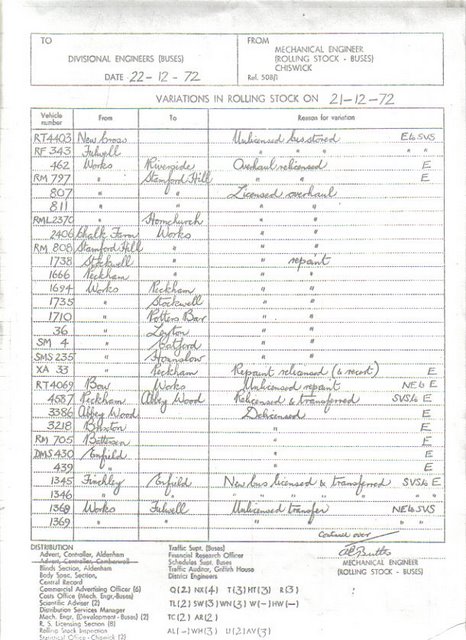 TO
DIVISIONAL ENGINEERS (BUSES)
DATE 22-12-72
FROM
MECHANICAL ENGINEER
(ROLLING STOCK - BUSES)
CHISWICK
Ref. 508/1
VARIATIONS IN ROLLING STOCK ON 21-12-72
Vehicle number From To Reason for variation
RT4403 New Cross Unlicensed bus stored E to SVS
RF 343 Fulwell " " " " "
462 Works Riverside Overhaul relicensed E
RM 797 " Stamford Hill " " E
807 " " Licensed overhaul
811 " " " "
RML2370 " Hornchurch " "
2406 Chalk Farm Works " "
RM 808 Stamford Hill " " "
1738 Stockwell " " repaint
1666 Peckham " " "
1694 Works Peckham " "
1735 " Stockwell " "
1710 " Potters Bar " "
36 " Leyton " "
SM 4 " Catford " "
SMS 235 " Hounslow " "
XA 33 " Peckham Repaint relicensed (& recert) E
RT4069 Bow Works Unlicensed repaint NE to E
4587 Peckham Abbey Wood Relicensed & transferred SVS to E
3386 Abbey Wood Delicensed E
3218 Brixton " E
RM 705 Battersea " E
DMS 430 Enfield " E
439 " " E
1345 Finchley Enfield New bus licensed & transferred SVS to E
1346 " " " " " " " "
1368 Works Fulwell Unlicensed transfer NE to SVS
1369 " " " " " "
Continue over
MECHANICAL ENGINEER
(ROLLING STOCK - BUSES)
DISTRIBUTION
Advert. Controller, Aldenham
Advert. Controller, Camberwell
Blinds Section, Aldenham
Body Spec. Section,
Central Record
Commercial Advertising Officer (6)
Costs Office (Mech. Engr.-Buses)
Scientific Adviser (2)
Distribution Services Manager
Mech. Engr. (Development - Buses) (2)
R. S. Licensing Section (8)
Rolling Stock Inspection
Statistical Office - Chiswick (2)
Traffic Supt. (Buses)
Financial Research Officer
Schedules Supt. Buses
Traffic Auditor, Griffith House
District Engineers
Q(2) NX(4) T(3) HT(3) R(3)
TL(2) SW(3) WN(3) W(-) HW(-)
TC(2) AR(2)
AL(-) WH(3) U(2) AV(3)